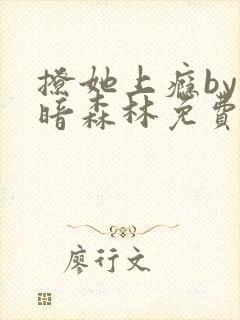 撩她上癮by
暗森林免費
廖行文